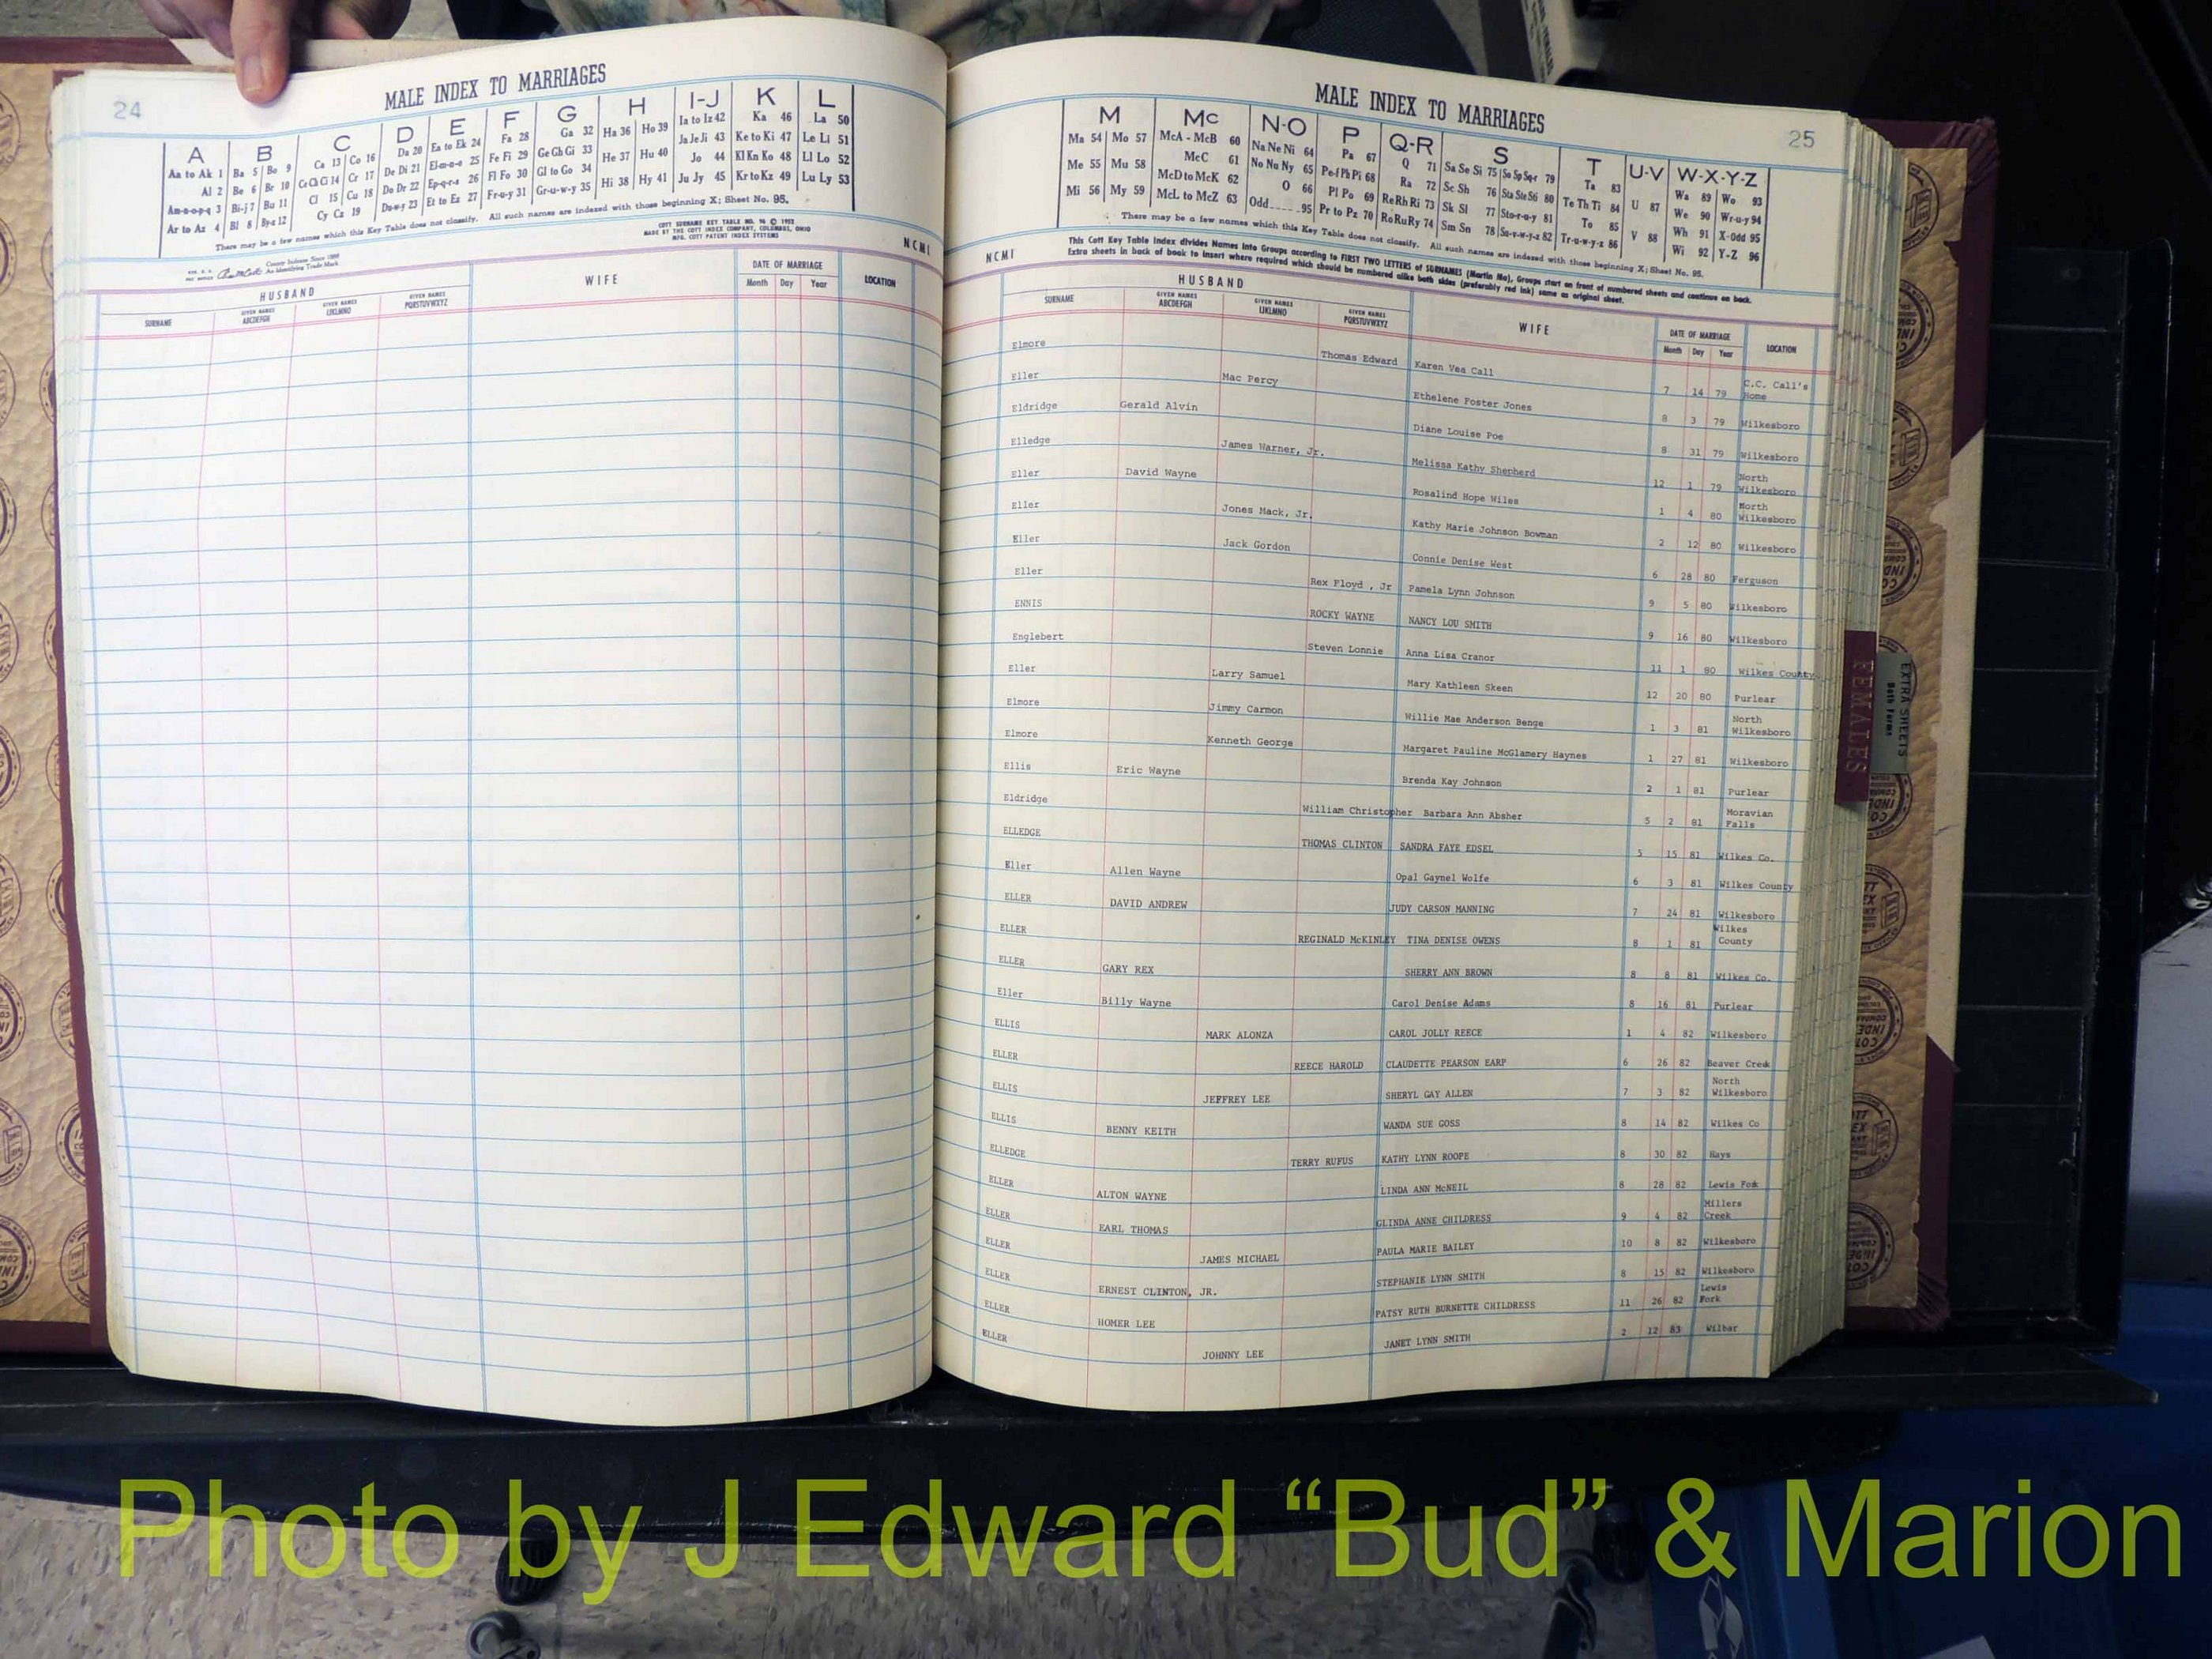 24
MALE INDEX TO MARRIAGES
A B C D E F G H I-J K L
Aa to Ak 1 Ba 5 Bo 9 Ca 13 Co 16 Da 20 Ea to Ek 24 Fa 28 Ga 32 Ha 36 Ho 39 Ia to Iz 42 Ka 46 La 50
Al 2 Be 6 Br 10 Ce Ch Ci 14 Cr 17 De Di 21 El-m-n-o 25 Fe Fi 29 Ge Gh Gi 33 He 37 Hu 40 Ja Je Ji 43 Ke to Ki 47 Le Li 51
Am-n-o-p-q 3 Bi-j 7 Bu 11 Cl 15 Cu 18 Do Dr 22 Ep-q-r-s 26 Fl Fo 30 Gl to Go 34 Hi 38 Hy 41 Jo 44 Kl Kn Ko 48 Ll Lo 52
Ar to Az 4 Bl 8 By-z 12 Cy Cz 19 Du-w-y 23 Et to Ez 27 Fr-u-y 31 Gr-u-w-y 35 Ju Jy 45 Kr to Kz 49 Lu Ly 53
There may be a few names which this Key Table does not classify. All such names are indexed with those beginning X; Sheet No. 95.
COTT SURNAME KEY TABLE NO. 96 © 1952
MADE BY THE COTT INDEX COMPANY, COLUMBUS, OHIO
MFG. COTT PATENT INDEX SYSTEMS
NCMI
County Indexes Since 1888
An Identifying Trade Mark
HUSBAND WIFE DATE OF MARRIAGE LOCATION
SURNAME GIVEN NAMES ABCDEFGH GIVEN NAMES IJKLMNO GIVEN NAMES PQRSTUVWXYZ Month Day Year
MALE INDEX TO MARRIAGES
25
M Mc N-O P Q-R S T U-V W-X-Y-Z
Ma 54 Mo 57 McA - McB 60 Na Ne Ni 64 Pa 67 Q 71 Sa Se Si 75 So Sp Sq-r 79 Ta 83 U 87 Wa 89 Wo 93
Me 55 Mu 58 McC 61 No Nu Ny 65 Pe-f Ph Pi 68 Ra 72 Sc Sh 76 Sta Ste Sti 80 Te Th Ti 84 V 88 We 90 Wr-u-y 94
Mi 56 My 59 McD to McK 62 O 66 Pl Po 69 Re Rh Ri 73 Sk Sl 77 Sto-r-u-y 81 To 85 Wh 91 X-Odd 95
McL to McZ 63 Odd 95 Pr to Pz 70 Ro Ru Ry 74 Sm Sn 78 Su-v-w-y-z 82 Tr-u-w-y-z 86 Wi 92 Y-Z 96
There may be a few names which this Key Table does not classify. All such names are indexed with those beginning X; Sheet No. 95.
NCMI
This Cott Key Table Index divides Names into Groups according to FIRST TWO LETTERS of SURNAMES (Martin Ma), Groups start on front of numbered sheets and continue on back.
Extra sheets in back of book to insert where required which should be numbered alike both sides (preferably red ink) same as original sheet.
HUSBAND WIFE DATE OF MARRIAGE LOCATION
SURNAME GIVEN NAMES ABCDEFGH GIVEN NAMES IJKLMNO GIVEN NAMES PQRSTUVWXYZ Month Day Year
Elmore Thomas Edward Karen Vea Call 7 14 79 C.C. Call's Home
Eller Mac Percy Ethelene Foster Jones 8 3 79 Wilkesboro
Eldridge Gerald Alvin Diane Louise Poe 8 31 79 Wilkesboro
Elledge James Warner, Jr. Melissa Kathy Shepherd 12 1 79 North Wilkesboro
Eller David Wayne Rosalind Hope Wiles 1 4 80 North Wilkesboro
Eller Jones Mack, Jr. Kathy Marie Johnson Bowman 2 12 80 Wilkesboro
Eller Jack Gordon Connie Denise West 6 28 80 Ferguson
Eller Rex Floyd , Jr Pamela Lynn Johnson 9 5 80 Wilkesboro
ENNIS ROCKY WAYNE NANCY LOU SMITH 9 16 80 Wilkesboro
Englebert Steven Lonnie Anna Lisa Cranor 11 1 80 Wilkes County
Eller Larry Samuel Mary Kathleen Skeen 12 20 80 Purlear
Elmore Jimmy Carmon Willie Mae Anderson Benge 1 3 81 North Wilkesboro
Elmore Kenneth George Margaret Pauline McGlamery Haynes 1 27 81 Wilkesboro
Ellis Eric Wayne Brenda Kay Johnson 2 1 81 Purlear
Eldridge William Christopher Barbara Ann Absher 5 2 81 Moravian Falls
ELLEDGE THOMAS CLINTON SANDRA FAYE EDSEL 5 15 81 Wilkes Co.
Eller Allen Wayne Opal Gaynel Wolfe 6 3 81 Wilkes County
ELLER DAVID ANDREW JUDY CARSON MANNING 7 24 81 Wilkesboro
ELLER REGINALD McKINLEY TINA DENISE OWENS 8 1 81 Wilkes County
ELLER GARY REX SHERRY ANN BROWN 8 8 81 Wilkes Co.
Eller Billy Wayne Carol Denise Adams 8 16 81 Purlear
ELLIS MARK ALONZA CAROL JOLLY REECE 1 4 82 Wilkesboro
ELLER REECE HAROLD CLAUDETTE PEARSON EARP 6 26 82 Beaver Creek
ELLIS JEFFREY LEE SHERYL GAY ALLEN 7 3 82 North Wilkesboro
ELLIS BENNY KEITH WANDA SUE GOSS 8 14 82 Wilkes Co
ELLEDGE TERRY RUFUS KATHY LYNN ROOPE 8 30 82 Hays
ELLER ALTON WAYNE LINDA ANN McNEIL 8 28 82 Lewis Fork
ELLER EARL THOMAS GLINDA ANNE CHILDRESS 9 4 82 Millers Creek
ELLER JAMES MICHAEL PAULA MARIE BAILEY 10 8 82 Wilkesboro
ELLER ERNEST CLINTON, JR. STEPHANIE LYNN SMITH 8 15 82 Wilkesboro
ELLER HOMER LEE PATSY RUTH BURNETTE CHILDRESS 11 26 82 Lewis Fork
ELLER JOHNNY LEE JANET LYNN SMITH 2 12 83 Wilbar
FEMALES
EXTRA SHEETS
Both Forms
Photo by J Edward “Bud” & Marion